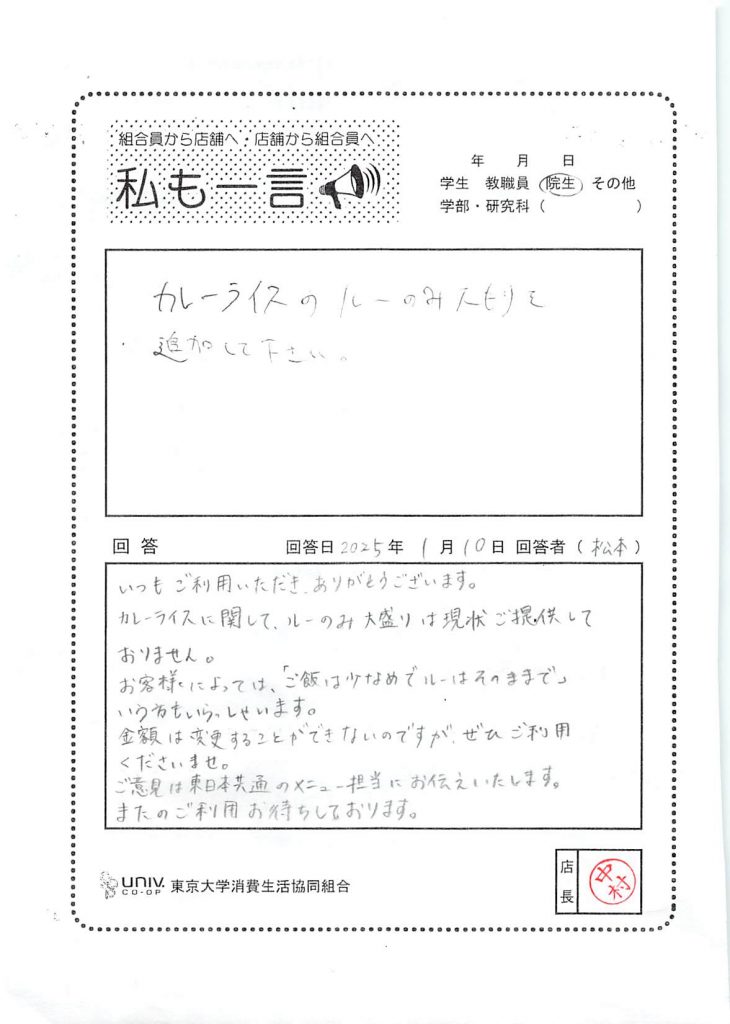 組合員から店舗へ・店舗から組合員へ
私も一言
年 月 日
学生 教職員 院生 その他
学部・研究科（ ）
カレーライスのルーのみ大もりを
追加して下さい。
回答 回答日2025年1月10日 回答者（松本）
いつもご利用いただき、ありがとうございます。
カレーライスに関して、ルーのみ大盛りは現状ご提供して
おりません。
お客様によっては、「ご飯は少なめでルーはそのままで」
いう方もいらっしゃいます。
金額は変更することができないのですが、ぜひご利用
くださいませ。
ご意見は東日本共通のメニュー担当にお伝えいたします。
またのご利用お待ちしております。
UNIV. CO-OP 東京大学消費生活協同組合
店長 中村